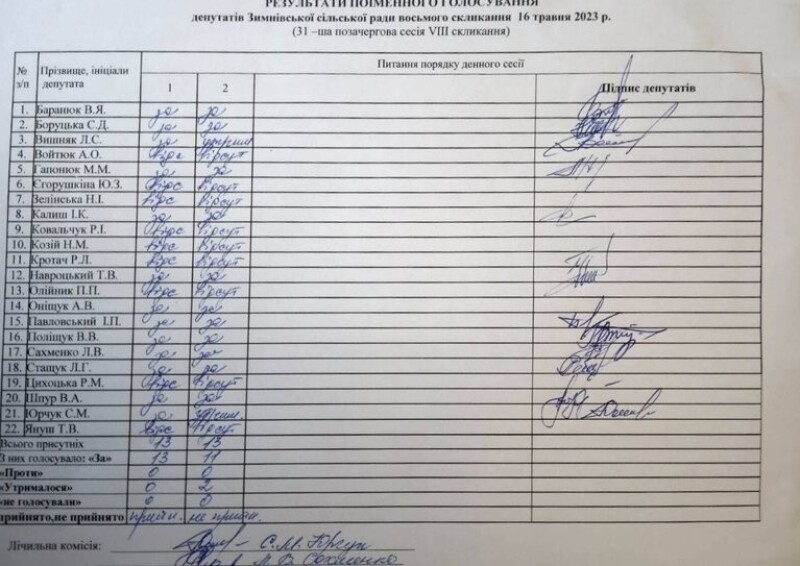 РЕЗУЛЬТАТИ ПОІМЕННОГО ГОЛОСУВАННЯ
депутатів Зимнівської сільської ради восьмого скликання 16 травня 2023 р.
(31 –ша позачергова сесія VIII скликання)
№ з/п Прізвище, ініціали депутата Питання порядку денного сесії
1 2 Підпис депутатів
1. Баранюк В.Я. за за
2. Боруцька С.Д. за за
3. Вишняк Л.С. за
4. Войтюк А.О. відс відсут
5. Гапонюк М.М. за за
6. Єгорушкіна Ю.З. відс відсут
7. Зелінська Н.І. відс відсут
8. Калиш І.К. за за
9. Ковальчук Р.І. відс відсут
10. Козій Н.М. відс відсут
11. Кротач Р.Л. відс відсут
12. Навроцький Т.В. за за
13. Олійник П.П. відс відсут
14. Оніщук А.В. за за
15. Павловський І.П. за за
16. Поліщук В.В. за за
17. Сахменко Л.В. за за
18. Стащук Л.Г. за за
19. Цихоцька Р.М. відс відсут
20. Шпур В.А. за за
21. Юрчук С.М. за
22. Януш Т.В. відс відсут
Всього присутніх 13 13
З них голосувало: «За» 13 11
«Проти» 0 0
«Утрималося» 0 2
«не голосували» 0 0
прийнято,не прийнято прийн. не прийн.
Лічильна комісія: С.М. Юрчук
Л.В. Сахменко